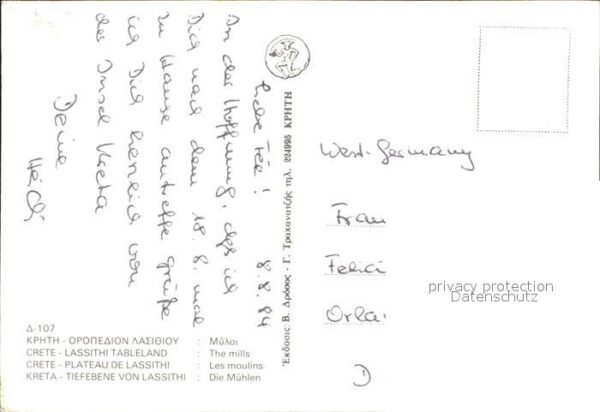 8.8.84
Liebe Fee!
In der Hoffnung, daß ich
Dich nach dem 18.8. mal
zu Hause antreffe grüße
ich Dich herzlich von
der Insel Kreta
Deine
Heidi
Εκδοσις: Β. Δρόσος - Γ. Τραχανατζής τηλ. 224995 ΚΡΗΤΗ
West-Germany
Frau
Felici
Orla
D
privacy protection
Datenschutz
Δ-107
ΚΡΗΤΗ - ΟΡΟΠΕΔΙΟΝ ΛΑΣΙΘΙΟΥ : Μῦλοι
CRETE - LASSITHI TABLELAND : The mills
CRETE - PLATEAU DE LASSITHI : Les moulins
KRETA - TIEFEBENE VON LASSITHI : Die Mühlen